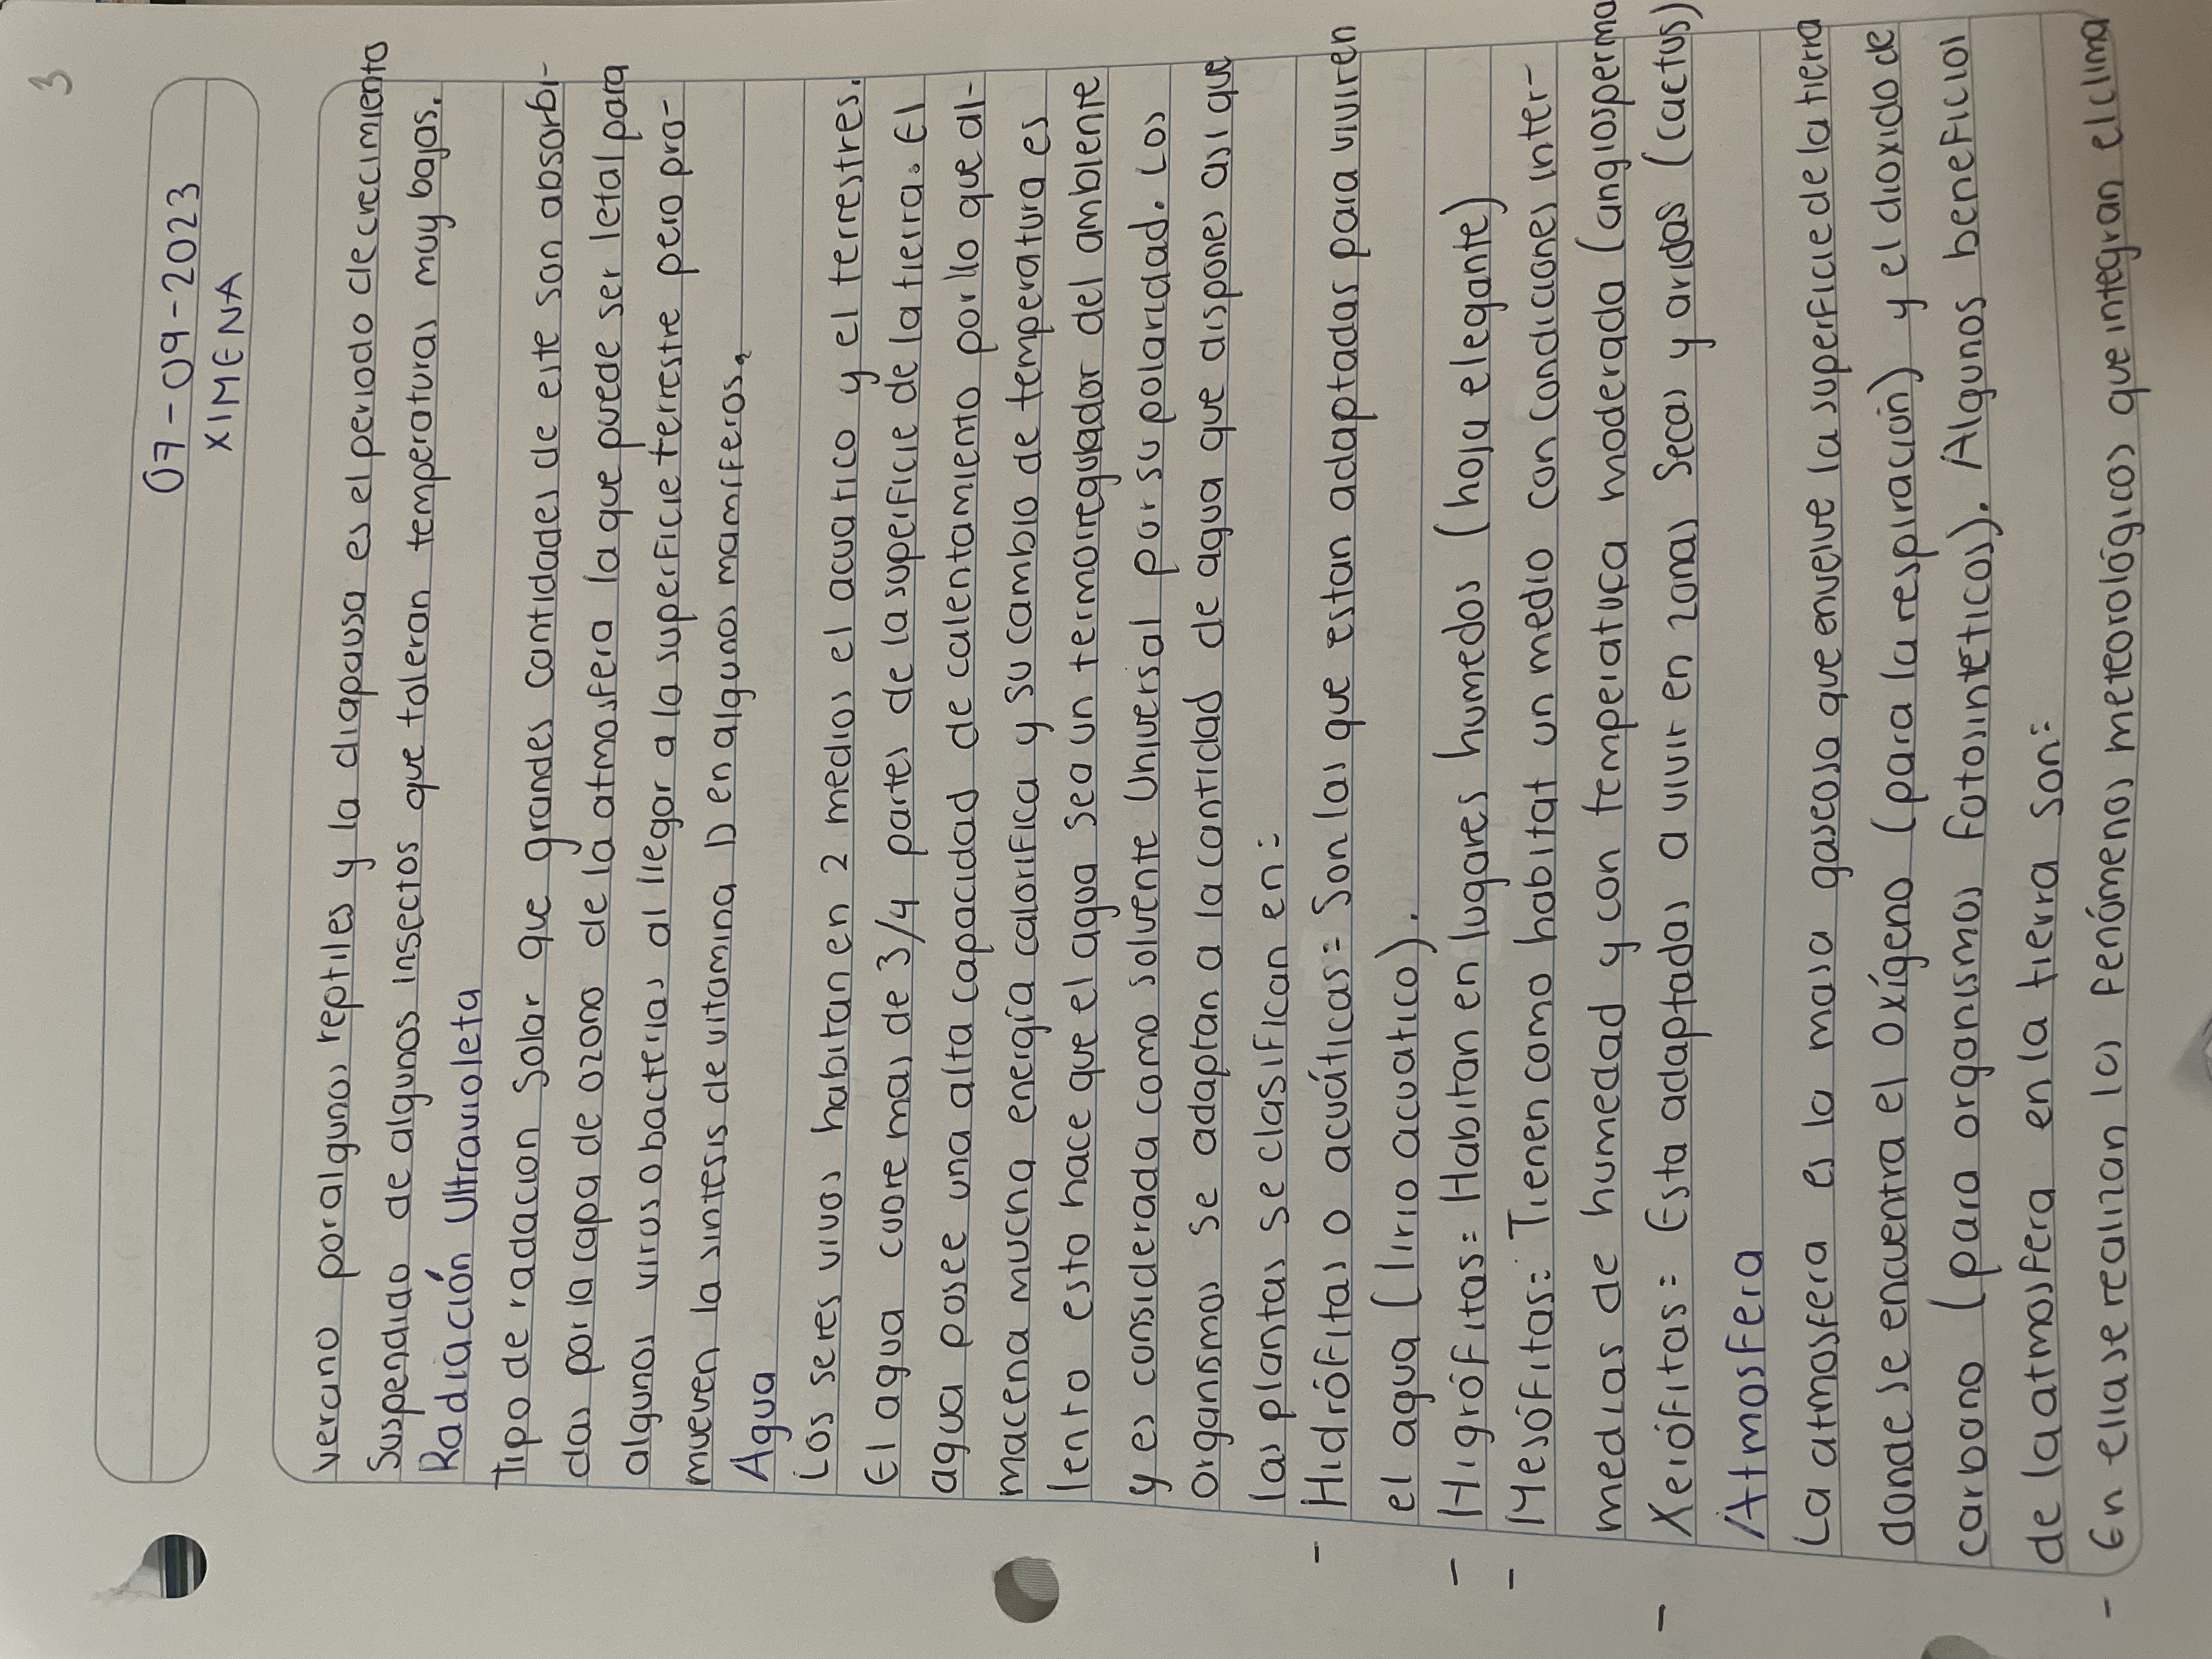 3
07-09-2023
XIMENA
verano por algunos reptiles y la diapausa es el periodo de crecimiento
Suspendido de algunos insectos que toleran temperaturas muy bajas.
Radiación Ultravioleta
Tipo de radacion Solar que grandes cantidades de este son absorbi-
das por la capa de ozono de la atmosfera la que puede ser letal para
algunos virus o bacterias al llegar a la superficie terrestre pero pro-
mueven la sintesis de vitamina D en algunos mamiferos.
Agua
Los seres vivos habitan en 2 medios el acuatico y el terrestres.
El agua cubre mas de 3/4 partes de la superficie de la tierra. El
agua posee una alta capacidad de calentamiento por llo que al-
macena mucha energía calorifica y su cambio de temperatura es
lento esto hace que el agua sea un termorregulador del ambiente
y es considerada como solvente Universal por su polaridad. Los
organismos se adaptan a la cantidad de agua que dispones asi que
las plantas se clasifican en:
- Hidrófitas o acuáticas: Son las que estan adaptadas para viviren
el agua (lirio acuatico).
- Higrófitas: Habitan en lugares humedos (hoja elegante)
- Mesófitas: Tienen como habitat un medio con condiciones inter-
medias de humedad y con temperatura moderada (angiosperma
- Xerófitas: Esta adaptadas a vivir en zonas secas y aridas (cactus)
Atmosfera
La atmosfera es la masa gaseosa que envuelve la superficie de la tierra
donde se encuentra el oxígeno (para la respiración) y el dioxido de
carbono (para organismos fotosintéticos). Algunos beneficios
de la atmosfera en la tierra son:
- En ella se realizan los fenómenos meteorológicos que integran el clima